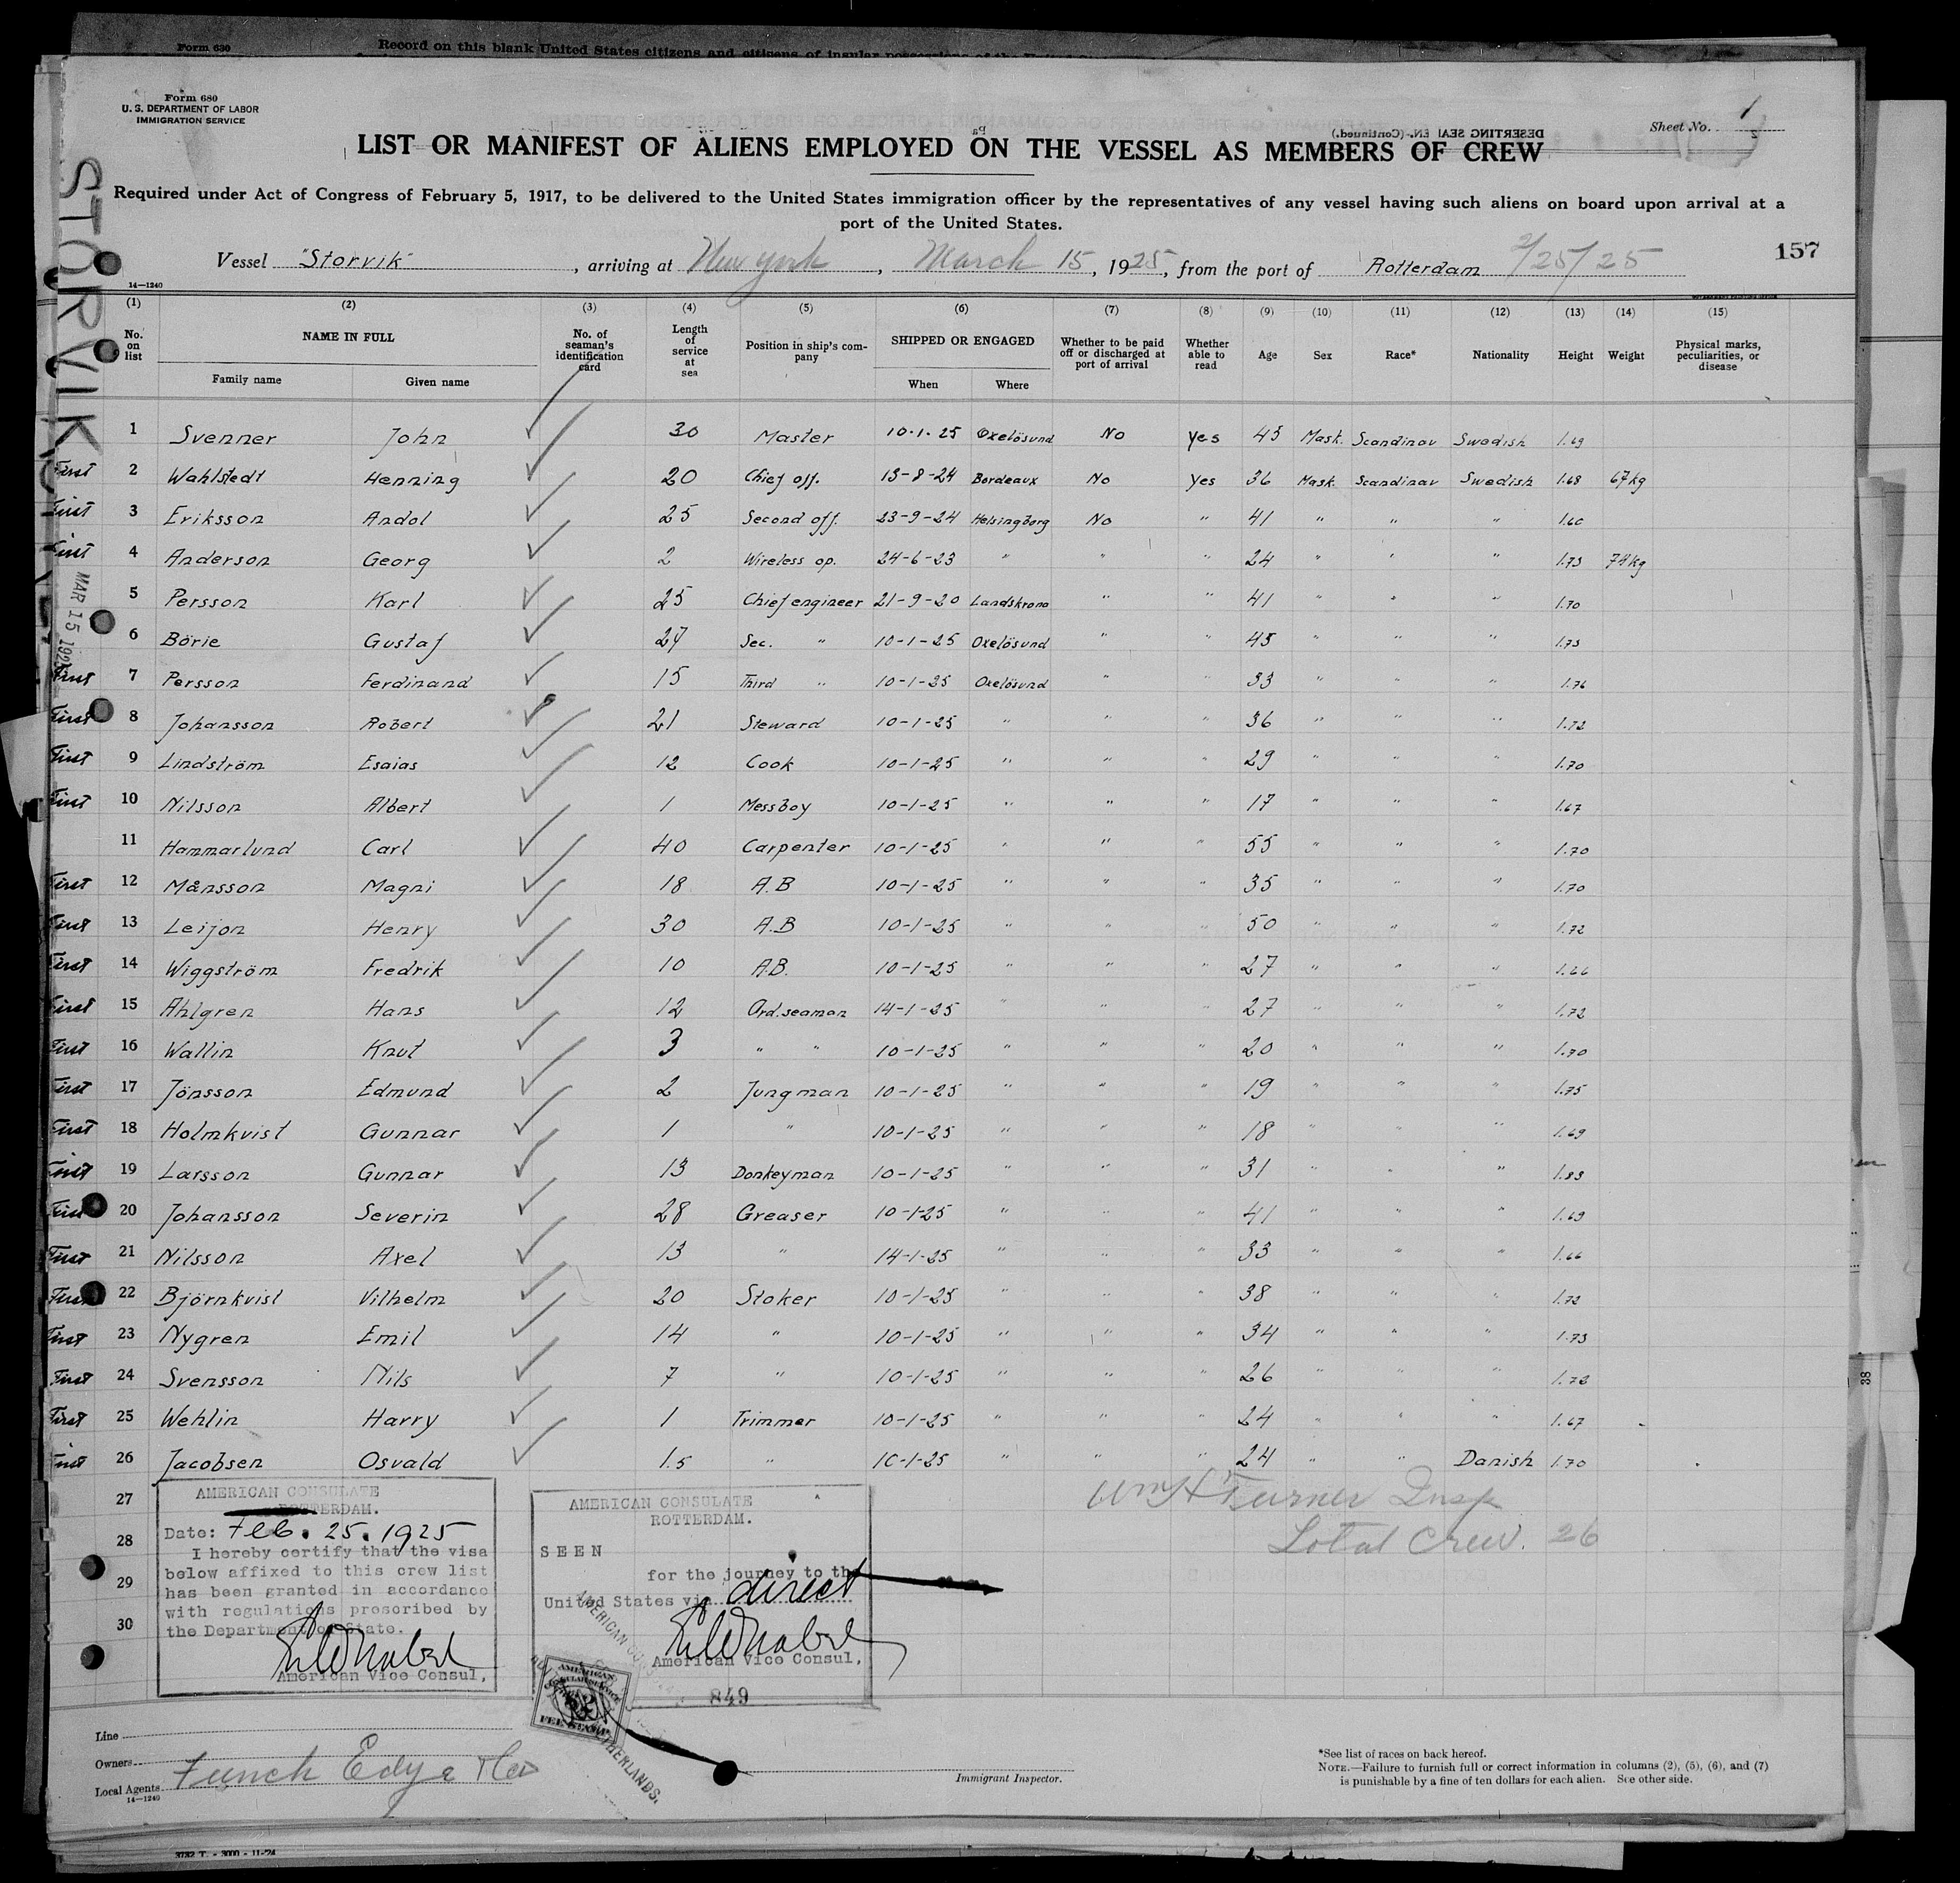 Form 630
Record on this blank United States citizens and citizens of insular possessions of the United
Form 680
U. S. DEPARTMENT OF LABOR
IMMIGRATION SERVICE
Sheet No. 1
LIST OR MANIFEST OF ALIENS EMPLOYED ON THE VESSEL AS MEMBERS OF CREW
Required under Act of Congress of February 5, 1917, to be delivered to the United States immigration officer by the representatives of any vessel having such aliens on board upon arrival at a
port of the United States.
Vessel "Storvik", arriving at New York, March 15, 1925, from the port of Rotterdam 2/25/25
157
14—1240
STORVIK
MAR 15 1925
(1) (2) (3) (4) (5) (6) (7) (8) (9) (10) (11) (12) (13) (14) (15)
No. on list NAME IN FULL Family name Given name No. of seaman's identification card Length of service at sea Position in ship's company SHIPPED OR ENGAGED When Where Whether to be paid off or discharged at port of arrival Whether able to read Age Sex Race* Nationality Height Weight Physical marks, peculiarities, or disease
1 Svenner John 30 Master 10-1-25 Oxelösund No yes 45 Mask. Scandinav Swedish 1.69
First 2 Wahlstedt Henning 20 Chief off. 13-8-24 Bordeaux No yes 36 Mask. Scandinav Swedish 1.68 67kg
First 3 Eriksson Andol 25 Second off. 23-9-24 Helsingborg No " 41 " " " 1.60
First 4 Anderson Georg 2 Wireless op. 24-6-23 " " " 24 " " " 1.73 78kg
5 Persson Karl 25 Chief engineer 21-9-20 Landskrona " " 41 " " " 1.70
6 Börie Gustaf 27 Sec. " 10-1-25 Oxelösund " " 45 " " " 1.75
First 7 Persson Ferdinand 15 Third " 10-1-25 Oxelösund " " 33 " " " 1.76
First 8 Johansson Robert 21 Steward 10-1-25 " " " 36 " " " 1.72
First 9 Lindström Esaias 12 Cook 10-1-25 " " " 29 " " " 1.70
First 10 Nilsson Albert 1 Messboy 10-1-25 " " " 17 " " " 1.67
11 Hammarlund Carl 40 Carpenter 10-1-25 " " " 55 " " " 1.70
First 12 Månsson Magni 18 A.B 10-1-25 " " " 35 " " " 1.70
First 13 Leijon Henry 30 A.B 10-1-25 " " " 50 " " " 1.72
First 14 Wiggström Fredrik 10 A.B. 10-1-25 " " " 27 " " " 1.66
First 15 Ahlgren Hans 12 Ord.seaman 14-1-25 " " " 27 " " " 1.72
First 16 Wallin Knut 3 " " 10-1-25 " " " 20 " " " 1.70
First 17 Jönsson Edmund 2 Jungman 10-1-25 " " " 19 " " " 1.75
First 18 Holmkvist Gunnar 1 " 10-1-25 " " " 18 " " " 1.69
First 19 Larsson Gunnar 13 Donkeyman 10-1-25 " " " 31 " " " 1.83
First 20 Johansson Severin 28 Greaser 10-1-25 " " " 41 " " " 1.69
First 21 Nilsson Axel 13 " 14-1-25 " " " 33 " " " 1.66
First 22 Björnkvist Vilhelm 20 Stoker 10-1-25 " " " 38 " " " 1.72
First 23 Nygren Emil 14 " 10-1-25 " " " 34 " " " 1.73
First 24 Svensson Nils 7 " 10-1-25 " " " 26 " " " 1.72
First 25 Wehlin Harry 1 Trimmer 10-1-25 " " " 24 " " " 1.67
First 26 Jacobsen Osvald 1.5 " 10-1-25 " " " 24 " " Danish 1.70
27
28
29
30
Wm H Turner Insp
Total Crew. 26
AMERICAN CONSULATE
ROTTERDAM.
Date: Feb. 25. 1925
I hereby certify that the visa
below affixed to this crew list
has been granted in accordance
with regulations prescribed by
the Department of State.
American Vice Consul.
AMERICAN CONSULATE
ROTTERDAM.
SEEN
for the journey to the
United States via direct
American Vice Consul.
849
AMERICAN
FEE STAMP
NETHERLANDS.
Line
Owners
Local Agents Funch Edye & Co
14—1240
Immigrant Inspector.
*See list of races on back hereof.
NOTE.—Failure to furnish full or correct information in columns (2), (5), (6), and (7)
is punishable by a fine of ten dollars for each alien. See other side.
38